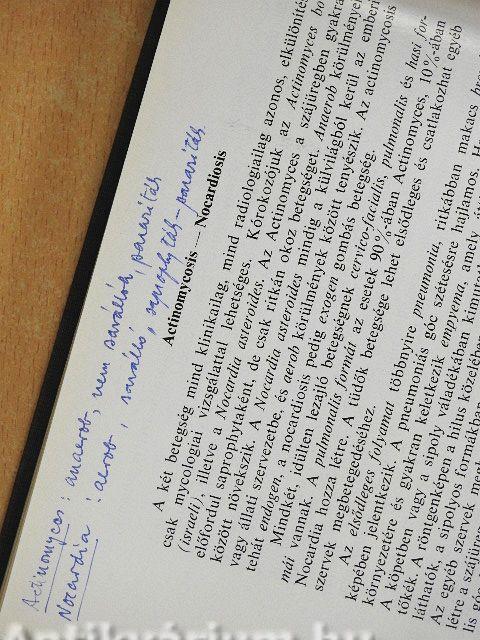 Actinomyces : anaerob, nem saválló, parazíták
Nocardia : aerob, saválló, saprophyták – parazíták
Actinomycosis — Nocardiosis
A két betegség mind klinikailag, mind radiologiailag azonos, elkülönítés
csak mycologiai vizsgálattal lehetséges. Kórokozójuk az Actinomyces bo
(israeli), illetve a Nocardia asteroides. Az Actinomyces a szájüregben gyakra
előfordul saprophytaként, de csak ritkán okoz betegséget. Anaerob körülménye
között növekszik. A Nocardia asteroides mindig a külvilágból kerül az emberi
vagy állati szervezetbe, és aerob körülmények között tenyészik. Az actinomycosis
tehát endogen, a nocardiosis pedig exogen gombás betegség.
Mindkét, idülten lezajló betegségnek cervico-facialis, pulmonalis és hasi for-
mái vannak. A pulmonalis formát az esetek 90%-ában Actinomyces, 10%-ában
Nocardia hozza létre. A tüdők betegsége lehet elsődleges és csatlakozhat egyéb
szervek megbetegedéséhez.
Az elsődleges folyamat többnyire pneumonia, ritkábban makacs
képében jelentkezik. A pneumoniás góc szétesésre hajlamos.
környezetére és gyakran keletkezik empyema, amely
A köpetben vagy a sipoly váladékában kimutat
tókék. A röntgenképen a hilus közelében
láthatók, a sipolyos formákban
Az egyéb szervek meg
létre a szájüreg
lis góc
Antikvárium.hu